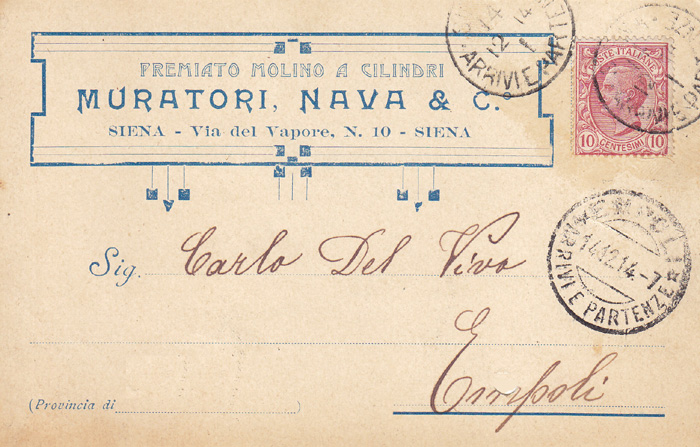 PREMIATO MOLINO A CILINDRI
MURATORI, NAVA & C.
SIENA - Via del Vapore, N. 10 - SIENA
POSTE ITALIANE
10 CENTESIMI 10
ARRIVI E
EMPOLI
14.12.14.-7
ARRIVI E PARTENZE
Sig. Carlo Del Vivo
Empoli
(Provincia di